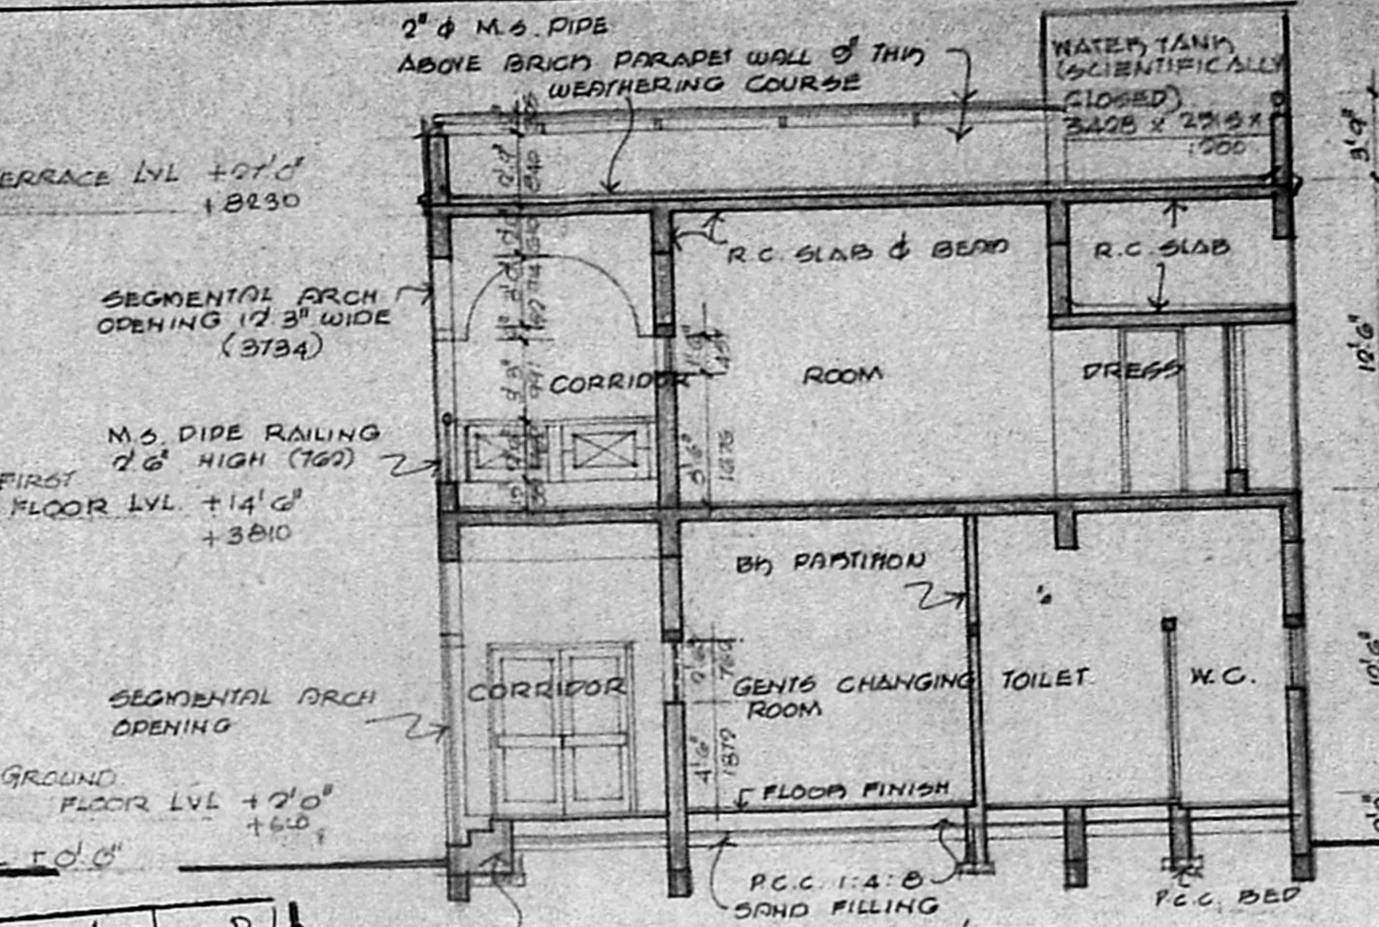 2" φ M.S. PIPE
ABOVE BRICK PARAPET WALL 9" THK
WEATHERING COURSE
WATER TANK
(SCIENTIFICALLY
CLOSED)
1200
TERRACE LVL +27'0"
+8230
3'9"
R.C. SLAB & BEAM
R.C. SLAB
SEGMENTAL ARCH
OPENING 12'3" WIDE
(3734)
12'6"
CORRIDOR
ROOM
DRESS
M.S. PIPE RAILING
2'6" HIGH (762)
FIRST
FLOOR LVL. +14'6"
+3810
5'6"
1675
BK PARTITION
SEGMENTAL ARCH
OPENING
CORRIDOR
GENTS CHANGING
ROOM
TOILET
W.C.
2'6"
762
10'6"
4'6"
FLOOR FINISH
GROUND
FLOOR LVL +2'0"
+610
0'0"
P.C.C. 1:4:8
SAND FILLING
P.C.C. BED